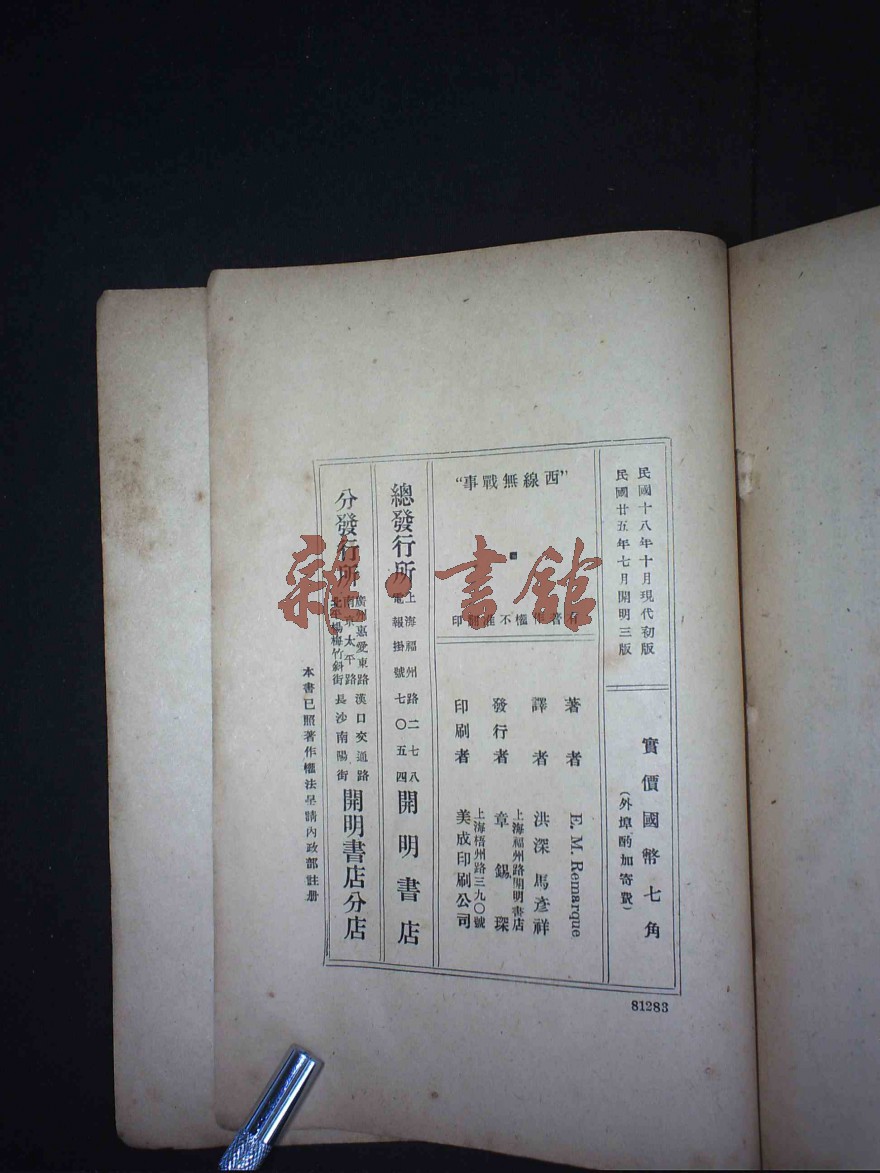 民國十八年十月現代初版
民國廿五年七月開明三版
實價國幣七角
(外埠酌加寄費)
"西線無戰事"
有著作權不准翻印
著者 E. M. Remarque
譯者 洪深 馬彥祥
上海福州路開明書店
發行者 章錫琛
上海梧州路三九〇號
印刷者 美成印刷公司
總發行所
上海福州路二七八
電報掛號七〇五四
開明書店
分發行所
廣州惠愛東路 漢口交通路
南京太平路
北平楊梅竹斜街 長沙南陽街
開明書店分店
本書已照著作權法呈請內政部註册
81283
雜·書館